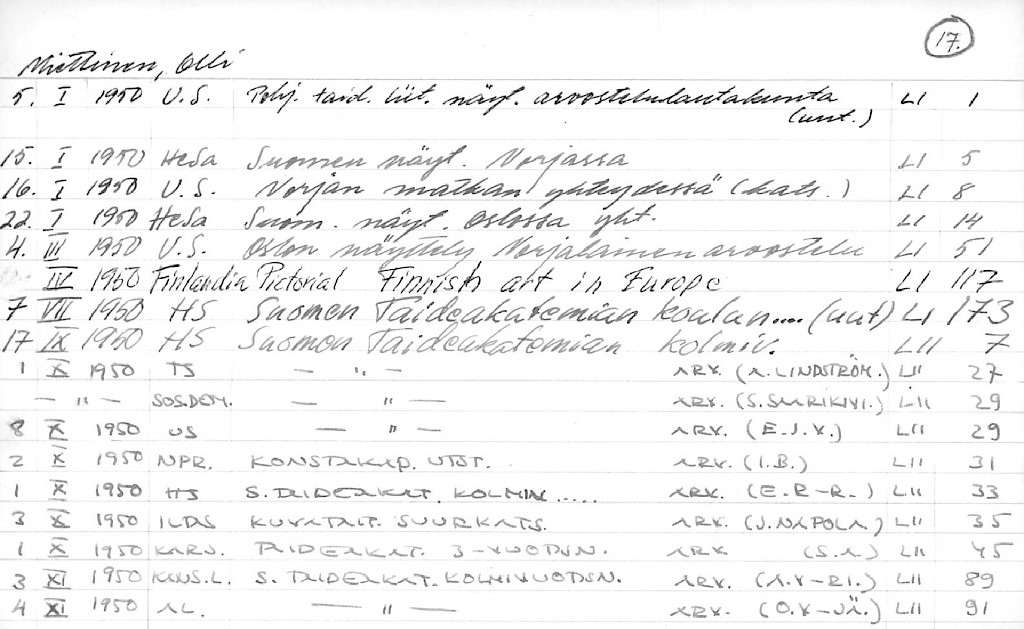 17.
Miettinen, Olli
5. I 1950 U.S. Pohj. taid. liit. näyt. arvostelulautakunta LI 1
(uut.)
15. I 1950 HeSa Suomen näyt. Norjassa LI 5
16. I 1950 U.S. Norjan matkan yhteydessä (kats.) LI 8
22. I 1950 HeSa Suom. näyt. Oslossa yht. LI 14
4. III 1950 U.S. Oslon näyttely Norjalainen arvostelu LI 51
IV 1950 Finlandia Pictorial Finnish art in Europe LI 117
7 VII 1950 HS Suomen Taideakatemian koulun.... (uut) LI 173
17 IX 1950 HS Suomen Taideakatemian kolmiv. LII 7
1 X 1950 TS — " — ARV. (A. LINDSTRÖM.) LII 27
— " — SOS.DEM. — " — ARV. (S. SAARIKIVI.) LII 29
8 X 1950 US — " — ARV. (E.J.V.) LII 29
2 X 1950 NPR. KONSTAKAD. UTST. ARV. (I.B.) LII 31
1 X 1950 HS S. TAIDEAKAT. KOLMIV..... ARV. (E.R-R.) LII 33
3 X 1950 ILTAS KUVATAIT. SUURKATS. ARV. (J. NAPOLA.) LII 35
1 X 1950 KARJ. TAIDEAKAT. 3-VUOTISN. ARV (S.A.) LII 45
3 XI 1950 KANS.L. S. TAIDEAKAT. KOLMIVUOTISN. ARV. (A.V-RI.) LII 89
4 XI 1950 AL. — " — ARV. (O.V-JÄ.) LII 91